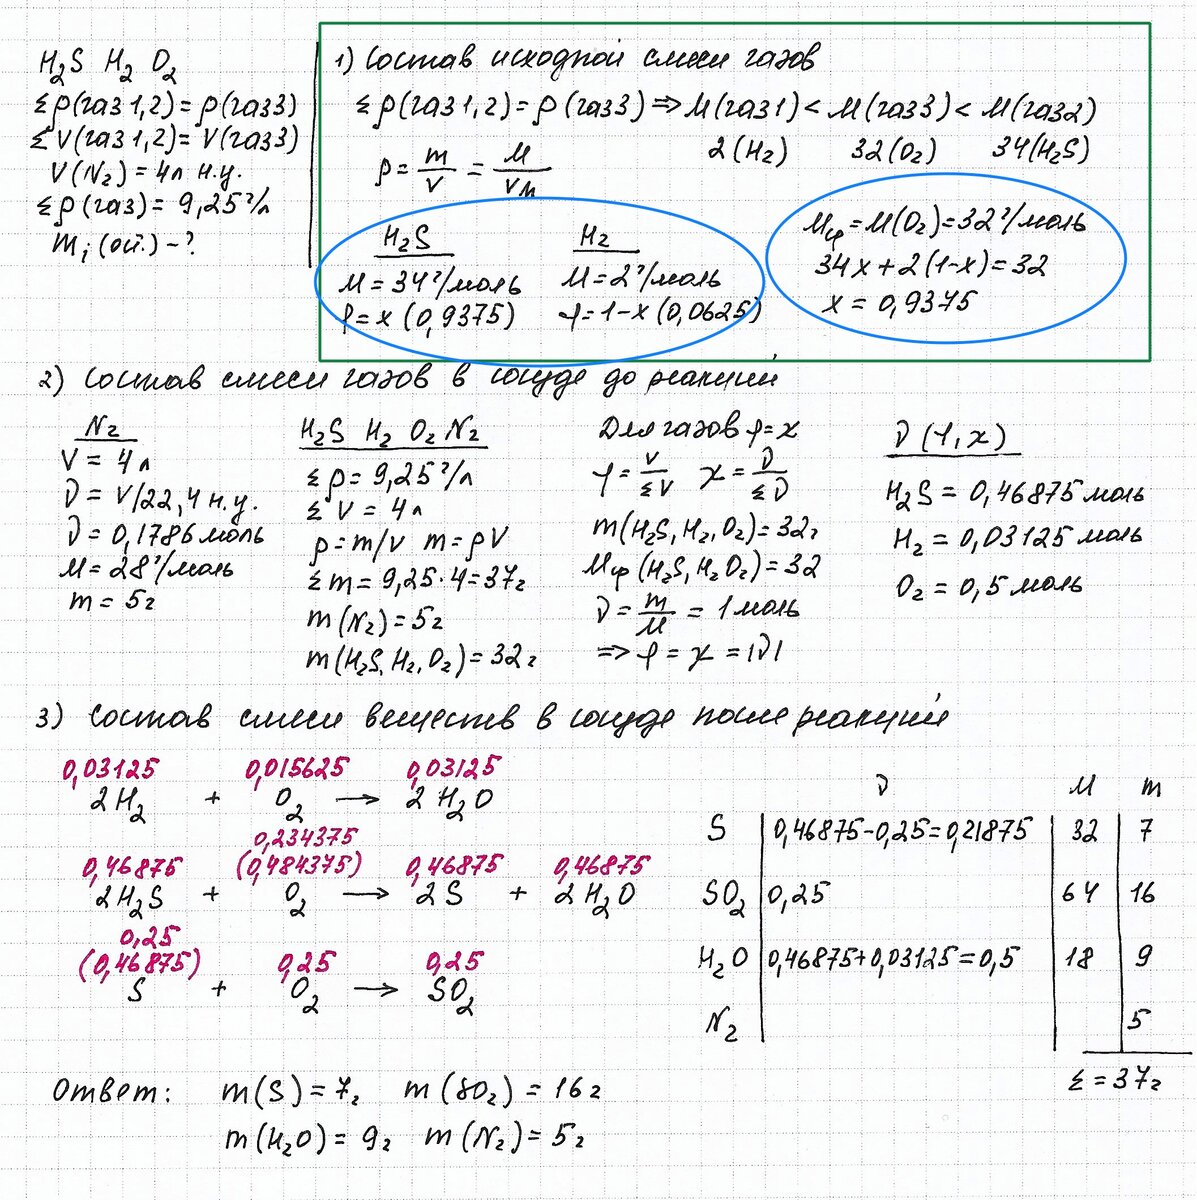 H₂S H₂ O₂
Σρ(газ1,2) = ρ(газ3)
ΣV(газ1,2) = V(газ3)
V(N₂) = 4л н.у.
Σρ(газ) = 9,25 г/л
mᵢ(ост.) - ?
1) Состав исходной смеси газов
Σρ(газ1,2) = ρ(газ3) => M(газ1) < M(газ3) < M(газ2)
2(H₂) 32(O₂) 34(H₂S)
ρ = m/V = M/Vm
H₂S H₂
M = 34 г/моль M = 2 г/моль
φ = x (0,9375) φ = 1-x (0,0625)
Mср = M(O₂) = 32 г/моль
34x + 2(1-x) = 32
x = 0,9375
2) Состав смеси газов в сосуде до реакций
N₂
V = 4л
ν = V/22,4 н.у.
ν = 0,1786 моль
M = 28 г/моль
m = 5г
H₂S H₂ O₂ N₂
Σρ = 9,25 г/л
ΣV = 4л
ρ = m/V m = ρV
Σm = 9,25·4 = 37г
m(N₂) = 5г
m(H₂S, H₂, O₂) = 32г
Для газов φ = χ
φ = V/ΣV χ = ν/Σν
m(H₂S, H₂, O₂) = 32г
Mср(H₂S, H₂O₂) = 32
ν = m/M = 1 моль
=> φ = χ = |ν|
ν(φ,χ)
H₂S = 0,46875 моль
H₂ = 0,03125 моль
O₂ = 0,5 моль
3) Состав смеси веществ в сосуде после реакций
0,03125 0,015625 0,03125
2H₂ + O₂ → 2H₂O
0,234375
0,46875 (0,484375) 0,46875 0,46875
2H₂S + O₂ → 2S + 2H₂O
0,25
(0,46875) 0,25 0,25
S + O₂ → SO₂
ν M m
S 0,46875-0,25=0,21875 32 7
SO₂ 0,25 64 16
H₂O 0,46875+0,03125=0,5 18 9
N₂ 5
Σ = 37г
Ответ: m(S) = 7г m(SO₂) = 16г
m(H₂O) = 9г m(N₂) = 5г